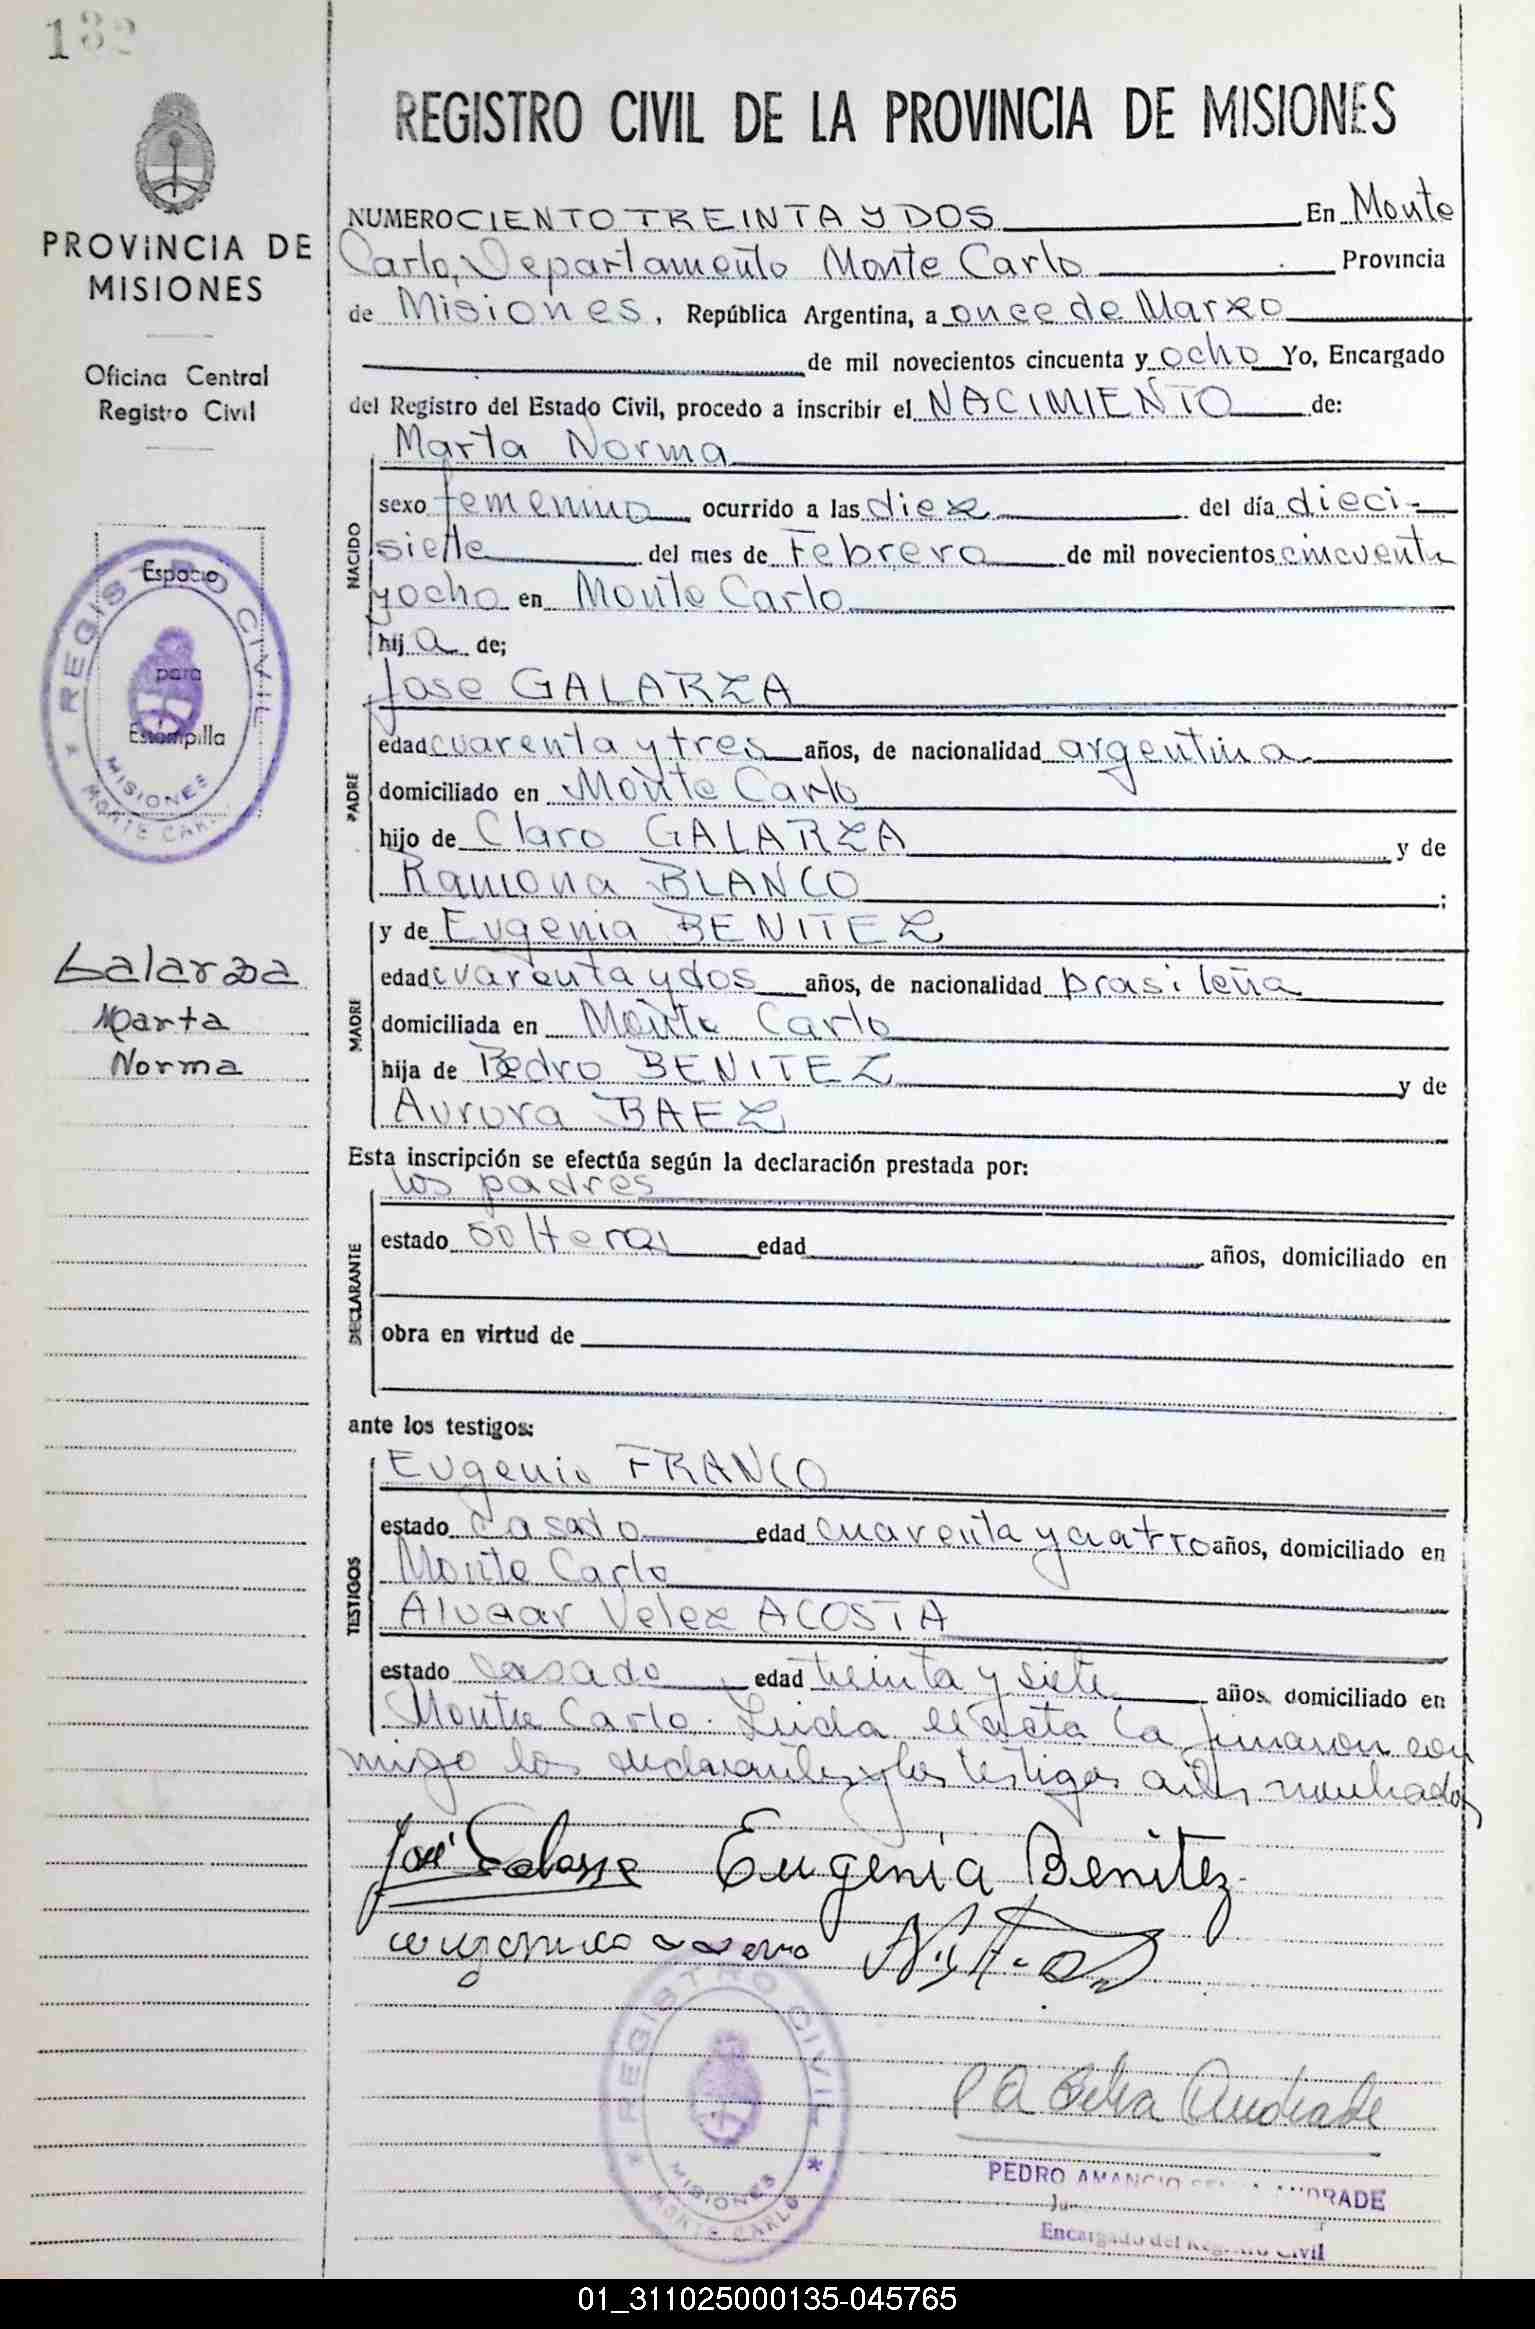 132
REGISTRO CIVIL DE LA PROVINCIA DE MISIONES
PROVINCIA DE
MISIONES
Oficina Central
Registro Civil
Espacio
para
Estampilla
REGISTRO CIVIL
MISIONES
MONTE CARLO
Galarza
Marta
Norma
NUMERO CIENTO TREINTA Y DOS En Monte
Carlo, Departamento Monte Carlo Provincia
de Misiones, República Argentina, a once de Marzo
de mil novecientos cincuenta y ocho Yo, Encargado
del Registro del Estado Civil, procedo a inscribir el NACIMIENTO de:
Marta Norma
NACIDO
sexo femenino ocurrido a las diez del día dieci-
siette del mes de Febrero de mil novecientos cincuenta
y ocho en Monte Carlo
hij a de;
Jose GALARZA
PADRE
edad cuarenta y tres años, de nacionalidad argentina
domiciliado en Monte Carlo
hijo de Claro GALARZA y de
Ramona BLANCO ;
y de Eugenia BENITEZ
MADRE
edad cuarenta y dos años, de nacionalidad brasileña
domiciliada en Monte Carlo
hija de Pedro BENITEZ y de
Aurora BAEZ
Esta inscripción se efectúa según la declaración prestada por:
los padres
DECLARANTE
estado edad años, domiciliado en
obra en virtud de
ante los testigos:
Eugenio FRANCO
TESTIGOS
estado casado edad cuarenta y cuatro años, domiciliado en
Monte Carlo
Velez ACOSTA
estado casado edad treinta y siete años, domiciliado en
Monte Carlo. Leida el acta la firmaron con
migo los declarantes y los testigos
José Galarza Eugenia Benitez
REGISTRO CIVIL
MISIONES
MONTE CARLO
P A Selva Andrade
PEDRO AMANCIO SELVA ANDRADE
Encargado del Registro Civil
01_311025000135-045765